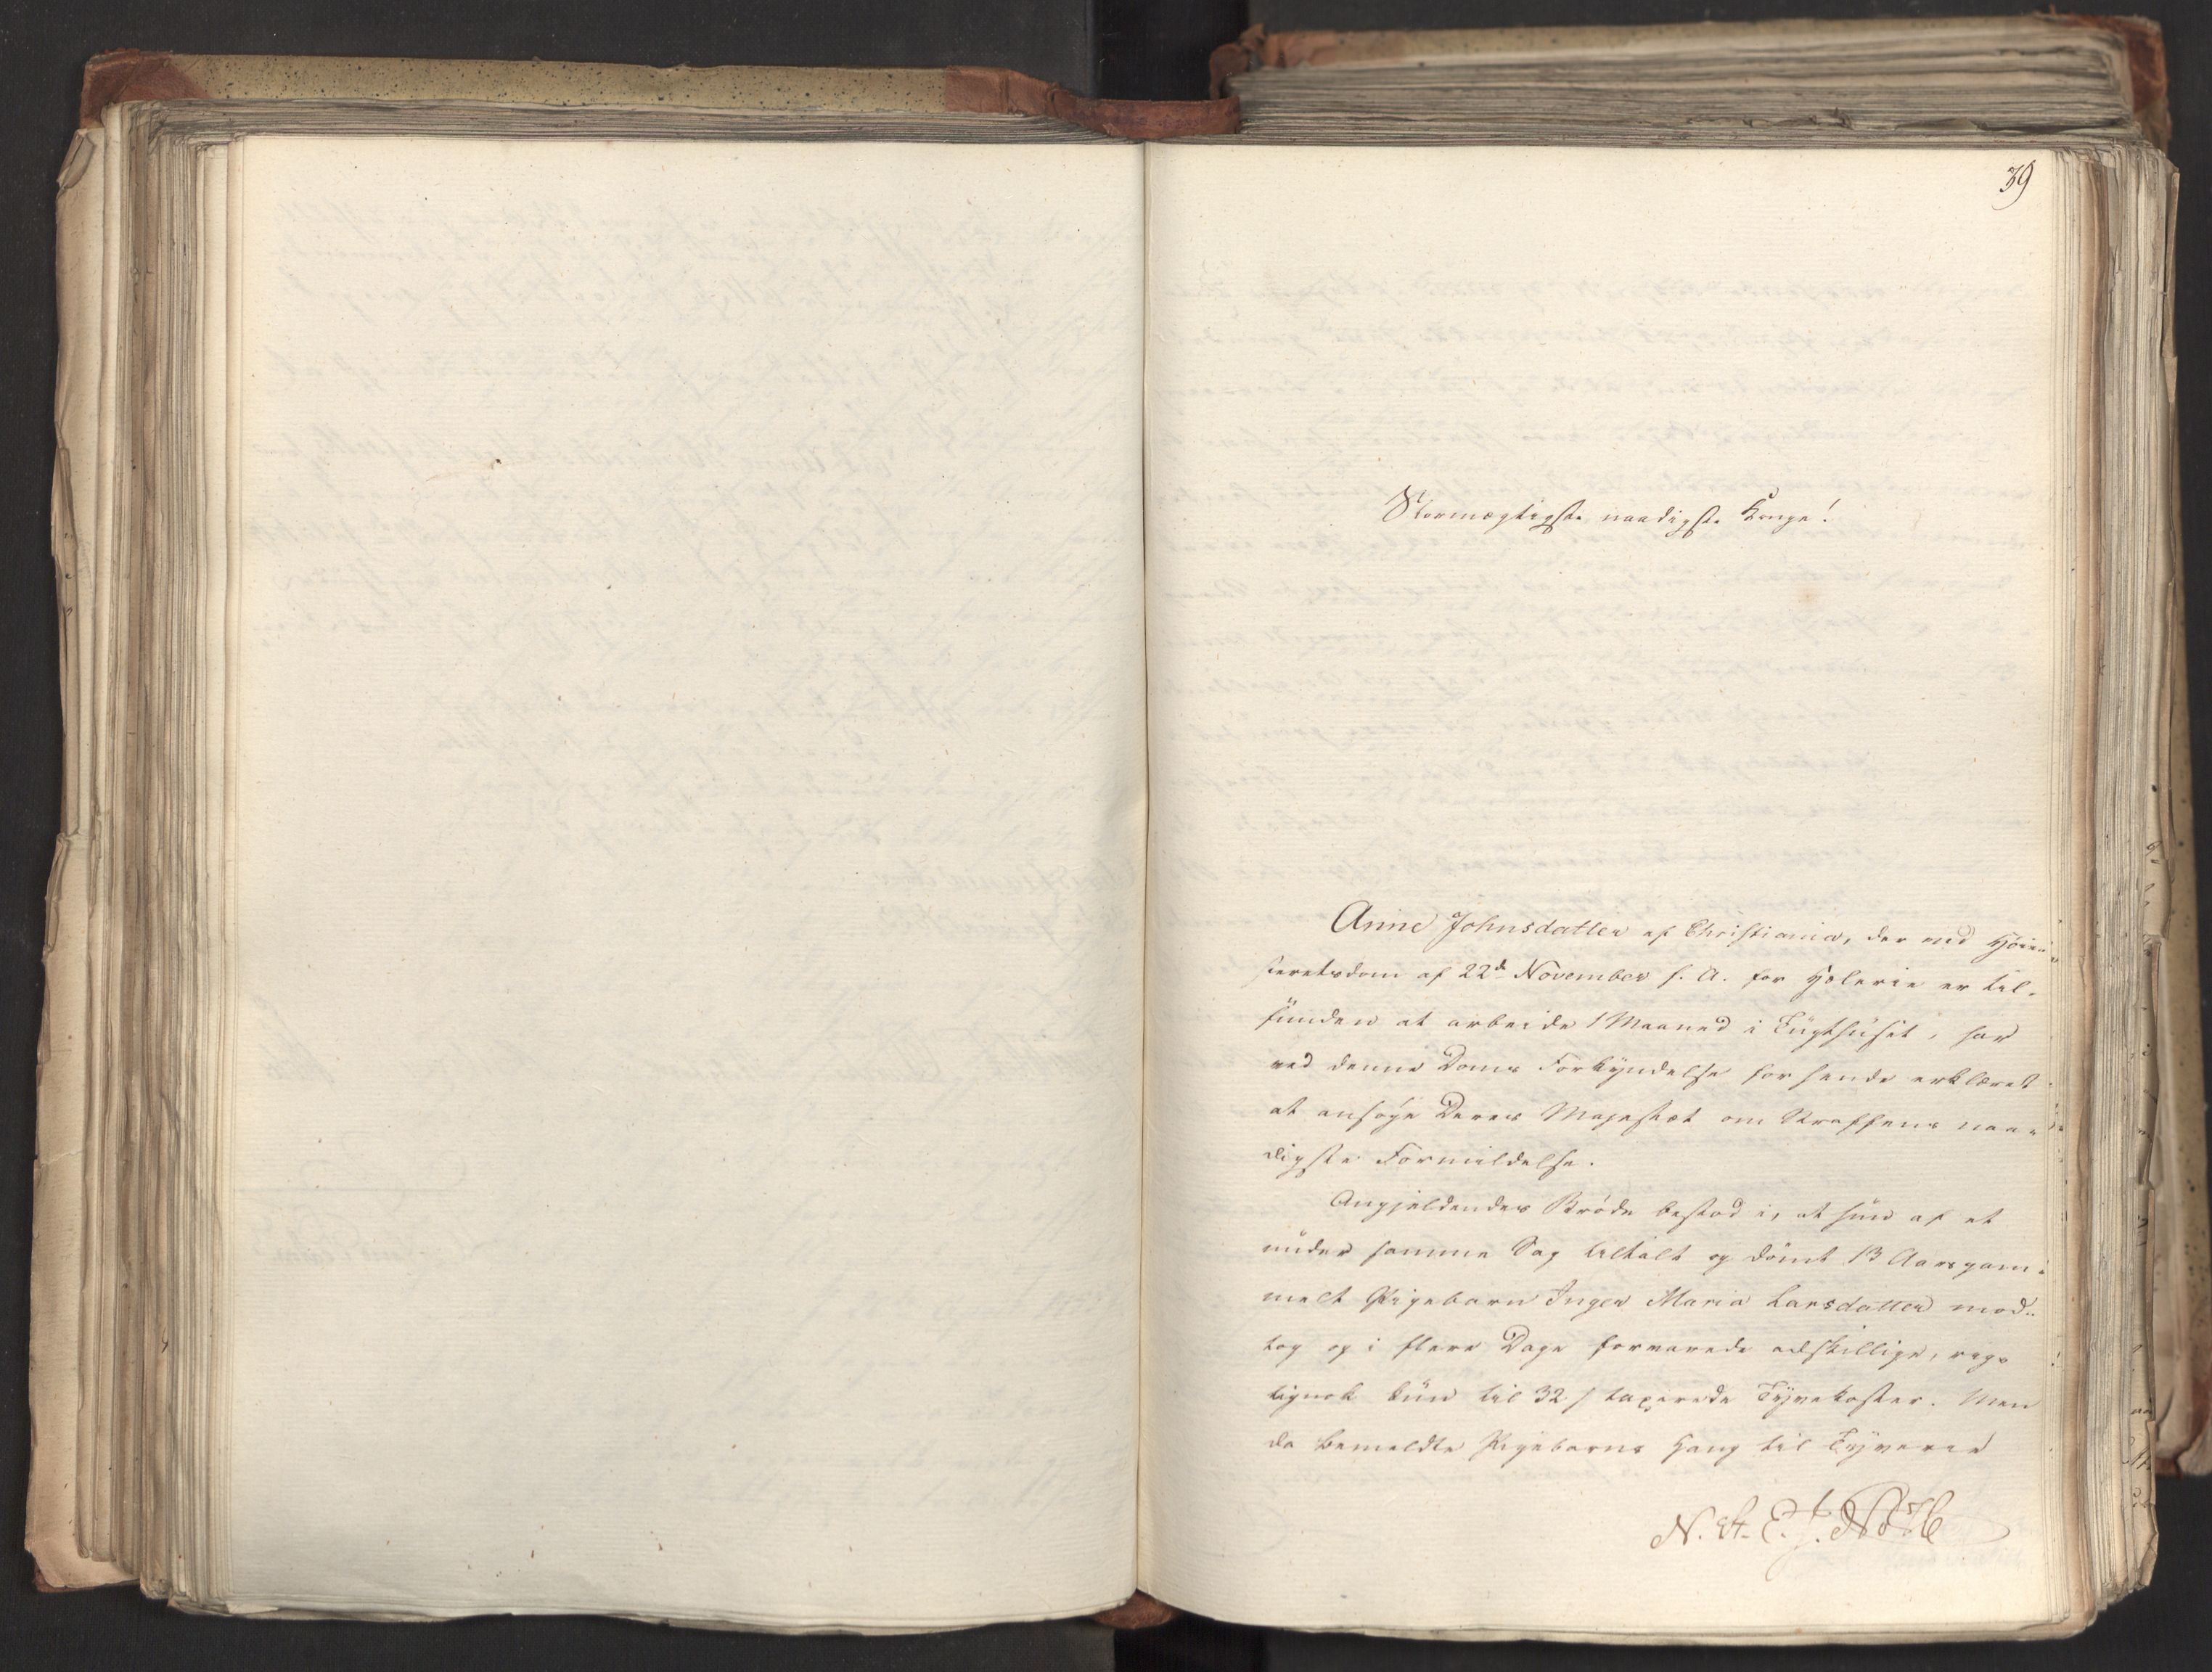 39
Stormægtigste, naadigste Konge!
Anne Johnsdatter af Christiania, der ved Høie-
steretsdom af 22de November f. A. for Hæleri er til-
funden at arbeide 1 Maaned i Tugthuset, har
ved denne Doms Forkyndelse for hende erklæret
at ansøge Deres Majestæt om Straffens naa-
digste Formildelse.
Angjeldendes Brøde bestod i, at hun af et
under samme Sag tiltalt og dømt 13 Aar gam-
melt Pigebarn Inger Maria Larsdatter mod-
tog og i flere Dage forvarede adskillige, rig-
tignok kun til 32 s taxerede Tyvekoster. Men
da bemeldte Pigebarns Hang til Tyverie
N. A. E.